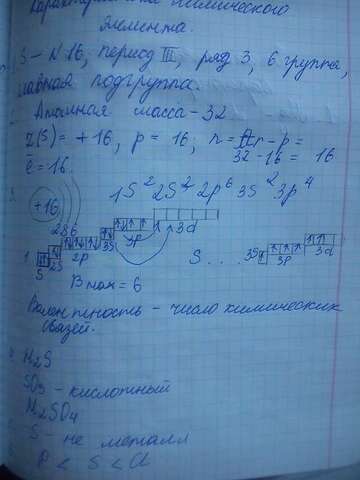 Характеристика химического
элемента.
S - N 16, период III, ряд 3, 6 группа,
главная подгруппа.
Атомная масса - 32
Z(S) = +16, p = 16, n = Ar - p =
32 - 16 = 16
ē = 16
+16
1S² 2S² 2p⁶ 3S² 3p⁴
2 8 6
3S 3p 3d
1 S 2S 2p
S . . . 3S 3p 3d
В max = 6
Валентность - число химических
связей.
H₂S
SO₃ - кислотный
H₂SO₄
S - не металл
P < S < Cl